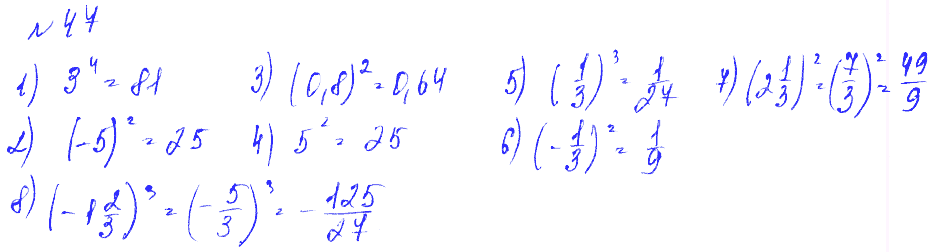 № 47
1) 3⁴ = 81 3) (0,8)² = 0,64 5) (1/3)³ = 1/27 7) (2 1/3)² = (7/3)² = 49/9
2) (-5)² = 25 4) 5² = 25 6) (-1/3)² = 1/9
8) (-1 2/3)³ = (-5/3)³ = -125/27